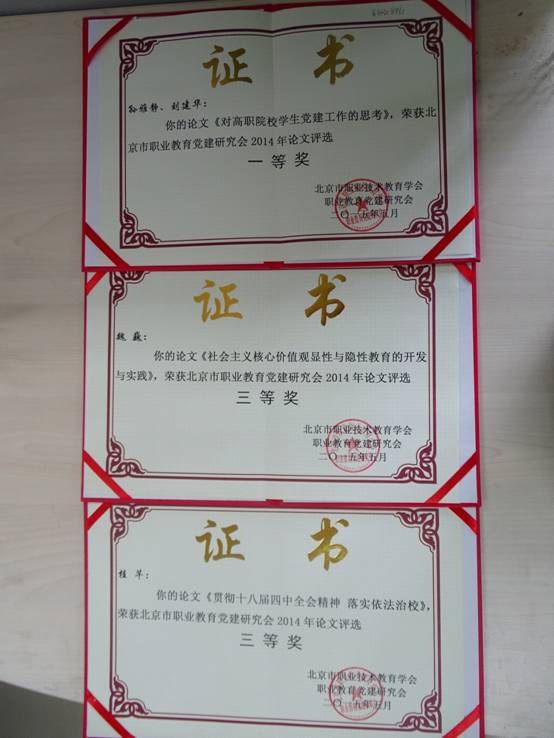 证 书
孙雅静、刘建华：
你的论文《对高职院校学生党建工作的思考》，荣获北
京市职业教育党建研究会2014年论文评选
一等奖
北京市职业技术教育学会
职业教育党建研究会
二〇一五年五月
证 书
魏 巍：
你的论文《社会主义核心价值观显性与隐性教育的开发
与实践》，荣获北京市职业教育党建研究会2014年论文评选
三等奖
北京市职业技术教育学会
职业教育党建研究会
二〇一五年五月
证 书
桂 苹：
你的论文《贯彻十八届四中全会精神 落实依法治校》，
荣获北京市职业教育党建研究会2014年论文评选
三等奖
北京市职业技术教育学会
职业教育党建研究会
二〇一五年五月